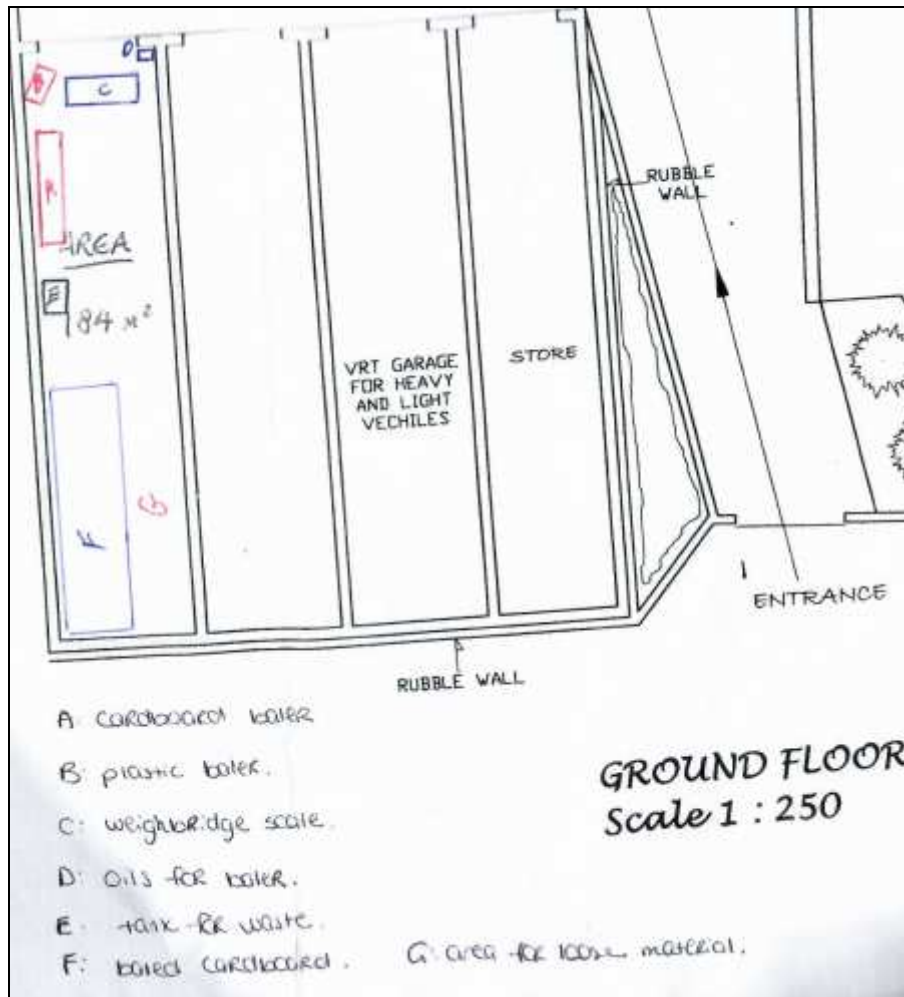 D
B
C
RUBBLE
WALL
A
AREA
E
184 m²
VRT GARAGE
FOR HEAVY
AND LIGHT
VECHILES
STORE
G
F
ENTRANCE
RUBBLE WALL
A: cardboard baler
B: plastic baler.
C: weighbridge scale.
D: oils for baler.
E: tank for waste.
F: baled cardboard. G: area for loose material.
GROUND FLOOR
Scale 1 : 250